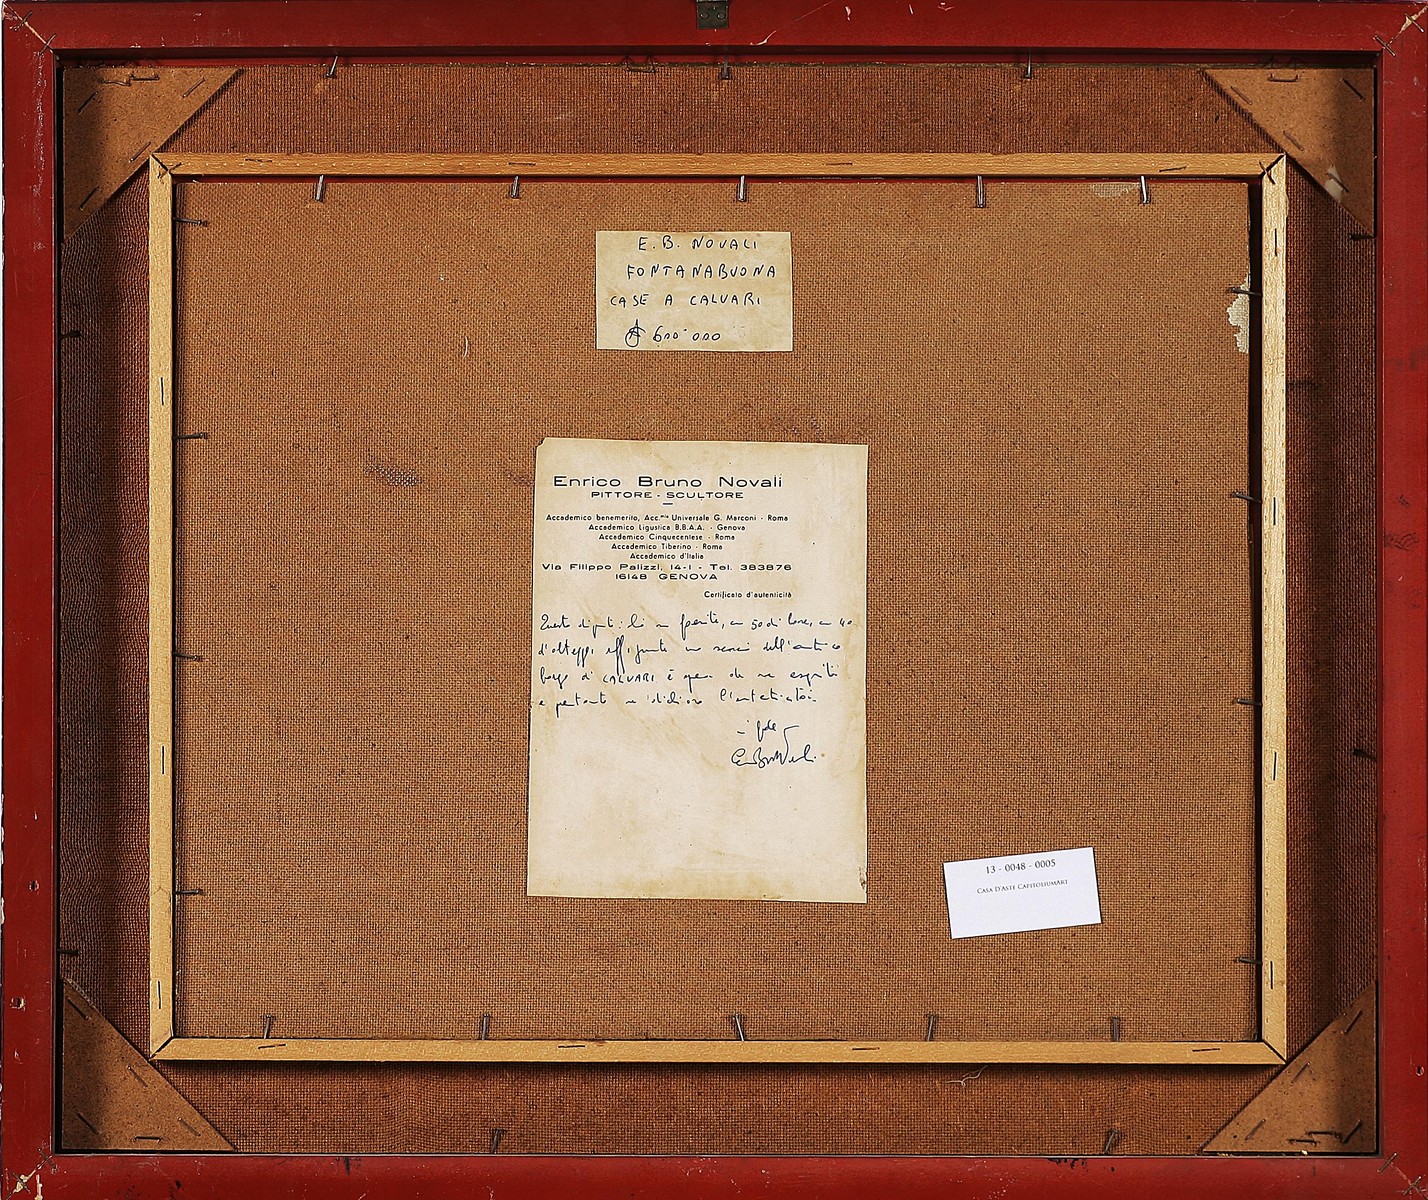 E. B. NOVALI
FONTANABUONA
CASE A CALVARI
600'000
Enrico Bruno Novali
PITTORE - SCULTORE
Accademico benemerito, Acc.mia Universale G. Marconi - Roma
Accademico Ligustica B.B.A.A. - Genova
Accademico Cinquecentese - Roma
Accademico Tiberino - Roma
Accademico d'Italia
Via Filippo Palizzi, 14-1 - Tel. 383876
16148 GENOVA
Certificato d'autenticità
Questo in faesite, cm 50 di base, cm 40
d'altezza effigiante uno scorcio dell'antico
borgo di CALVARI è opera da me eseguita
e pertanto ne l'autenticità.
in fede
13 - 0048 - 0005
CASA D'ASTE CAPITOLIUMART